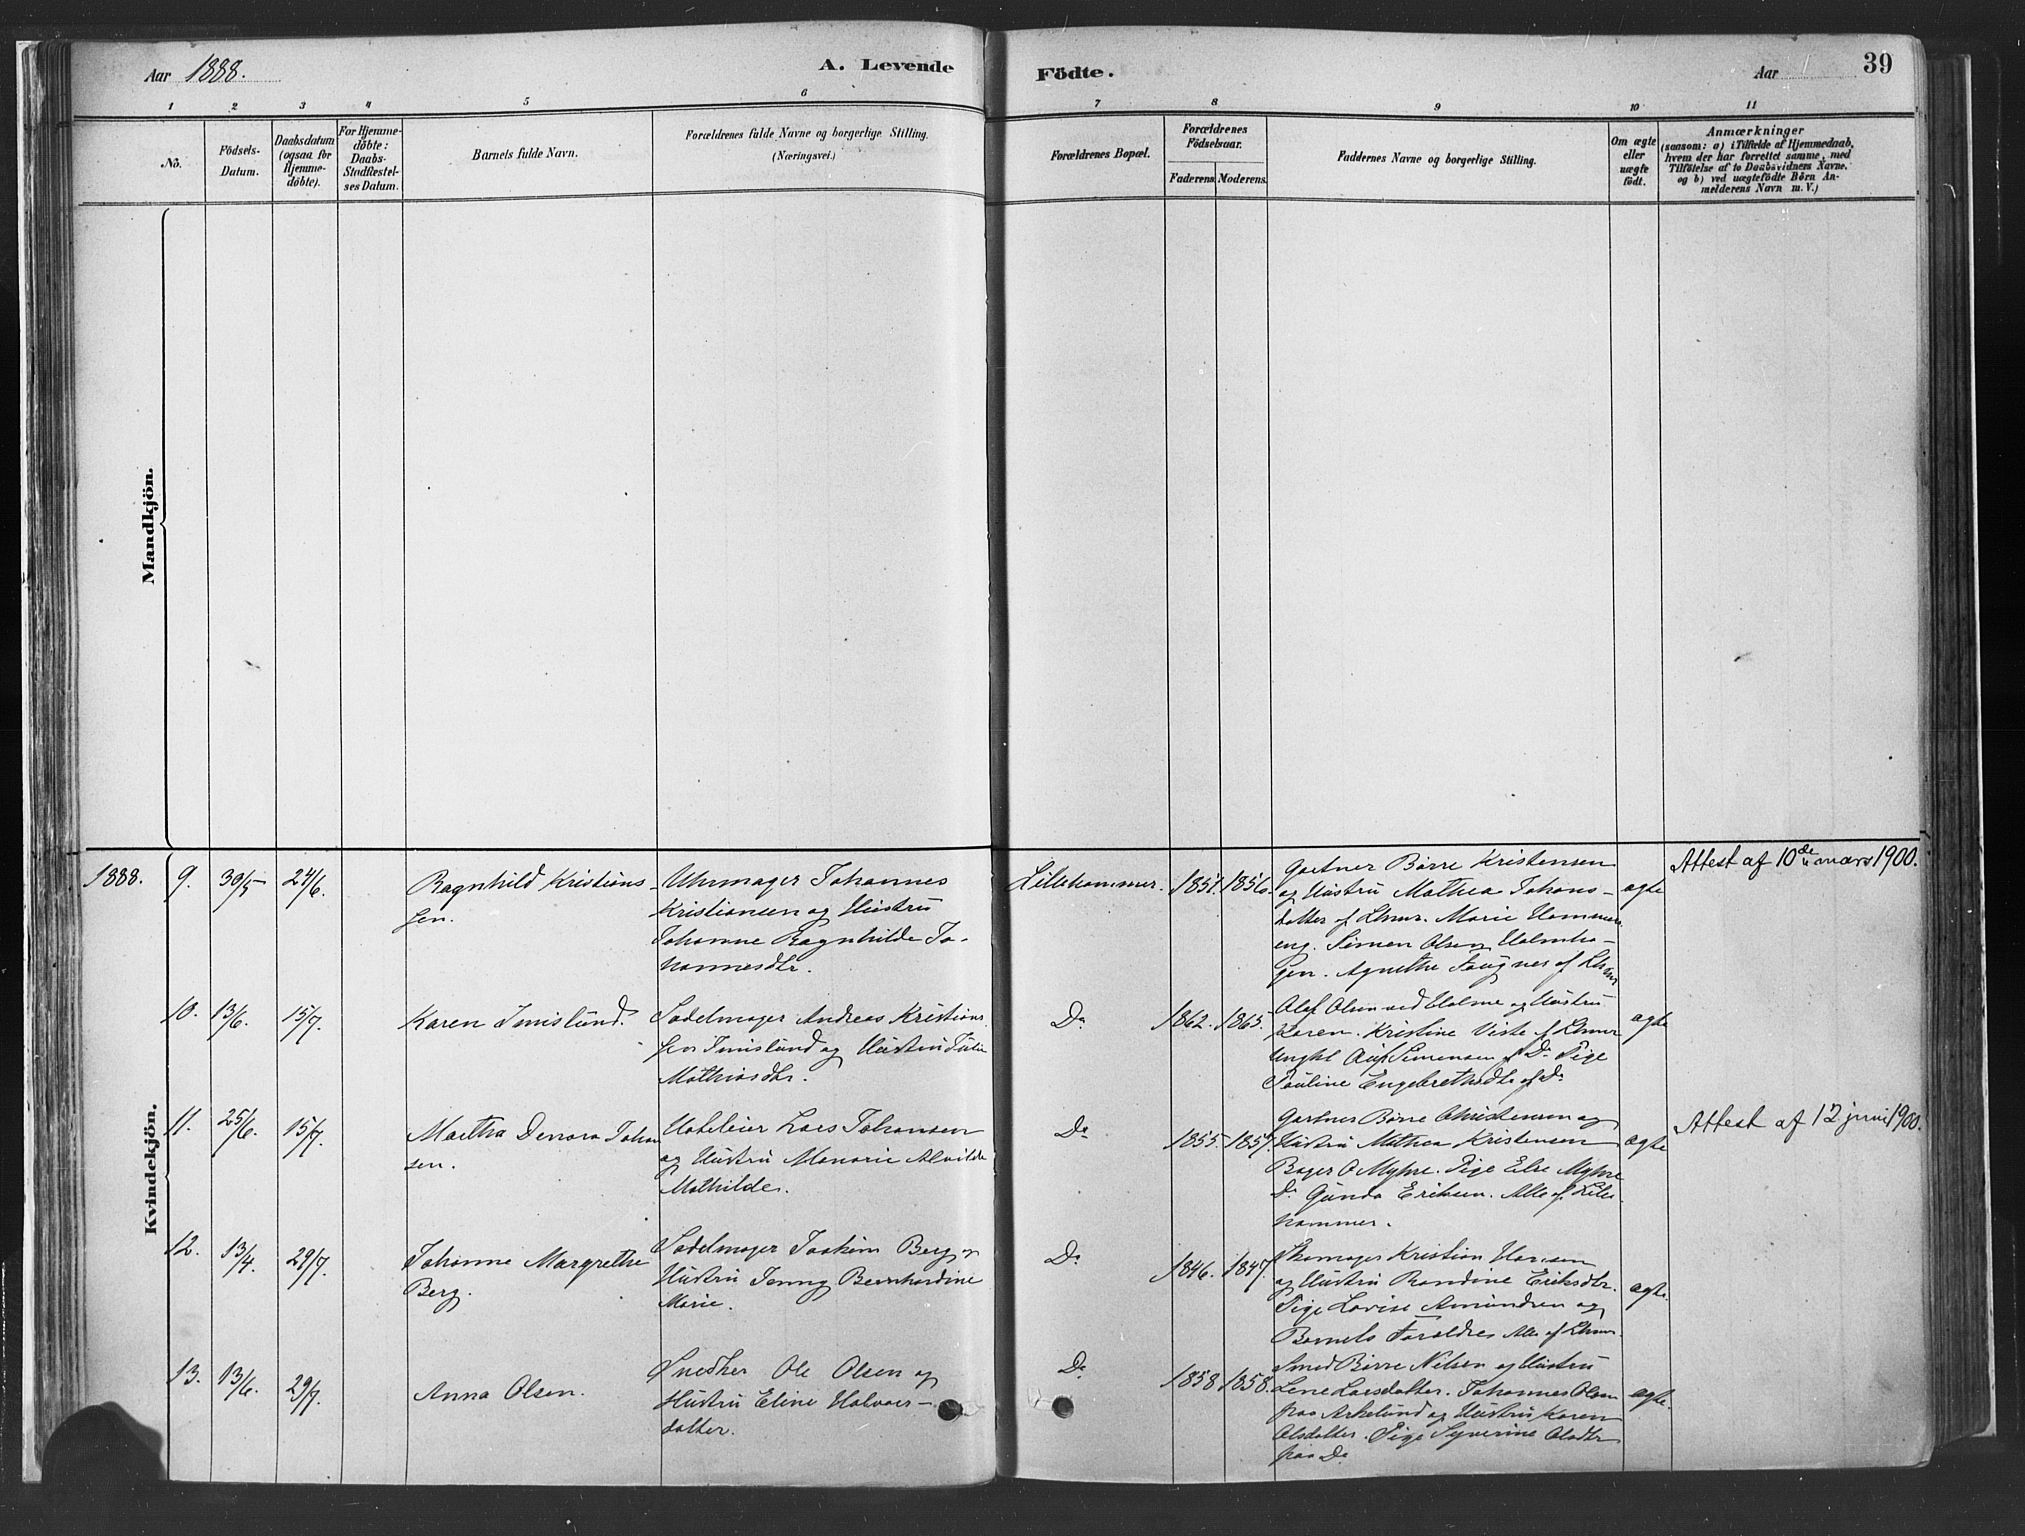 Aar 1888.
A. Levende
Födte.
Aar
39
1
2
3
4
5
6
7
8
9
10
11
No.
Födsels-
Datum.
Daabsdatum
(ogsaa for
Hjemme-
döbte).
For Hjemme-
döbte:
Daabs-
Stadfæstel-
ses Datum.
Barnets fulde Navn.
Forældrenes fulde Navne og borgerlige Stilling.
(Næringsvei.)
Forældrenes Bopæl.
Forældrenes
Födselsaar.
Faderens.
Moderens.
Faddernes Navne og borgerlige Stilling.
Om ægte
eller
uægte
födt.
Anmærkninger
(saasom: a) i Tilfælde af Hjemmedaab,
hvem der har forrettet samme, med
Tilföielse af to Daabsvidners Navne,
og b) ved uægtefödte Börn An-
melderens Navn m. V.)
Mandkjön.
Kvindekjön.
1888.
9.
30/5
24/6.
Ragnhild Kristians
sen.
Uhrmager Johannes
Kristiansen og Hustru
Johanne Ragnhilde Jo-
hannesdtr.
Lillehammer.
1857.
1856.
Gartner Børre Kristensen
og Hustru Mathea Johans-
datter af Lhmr. Marie Hammer
eng. Simen Olsen Holmha-
gen. Agnethe Faugner af Lhmr
ægte
Attest af 10de mars 1900.
10.
13/6.
15/7.
Karen Imislund.
Sadelmager Andreas Kristian
sen Imislund og Hustru Julie
Mathiasdtr.
Do
1862.
1865.
Olaf Olsen ved Holme og Hustru
Karen. Kristine Viste af Lhmr
Ungkl Simensen af Do Pige
Pauline Engebrethsdtr af Do
ægte
11.
25/6.
15/7.
Martha Johan
sen.
Lars Johansen
og Hustru Alvilde
Mathilde.
Do
1855.
1857.
Gartner Børre Christensen og
Hustru Mathea Kristensen
Bager O Myhre. Pige Else Myhre
Do Gunda Eriksen. Alle af Lille
hammer.
ægte
Attest af 12 juni 1900.
12.
13/4.
29/7.
Johanne Margrethe
Berg.
Sadelmager Joakim Berg og
Hustru Jenny Bernhardine
Marie.
Do
1846.
1847.
Skomager Kristian Hansen
og Hustru Randine Eriksdtr.
Pige Lovise Amundsen og
Barnets Forældres Alle af Lhmr.
ægte.
13.
13/6.
29/7.
Anna Olsen.
Snedker Ole Olsen og
Hustru Eline Halvors-
datter.
Do
1858
1858.
Smed Børre Nilsen og Hustru
Lene Larsdatter. Johannes Olsen
paa og Hustru Karen
Olsdatter. Pige Syverine Olsdtr
paa Do
ægte.